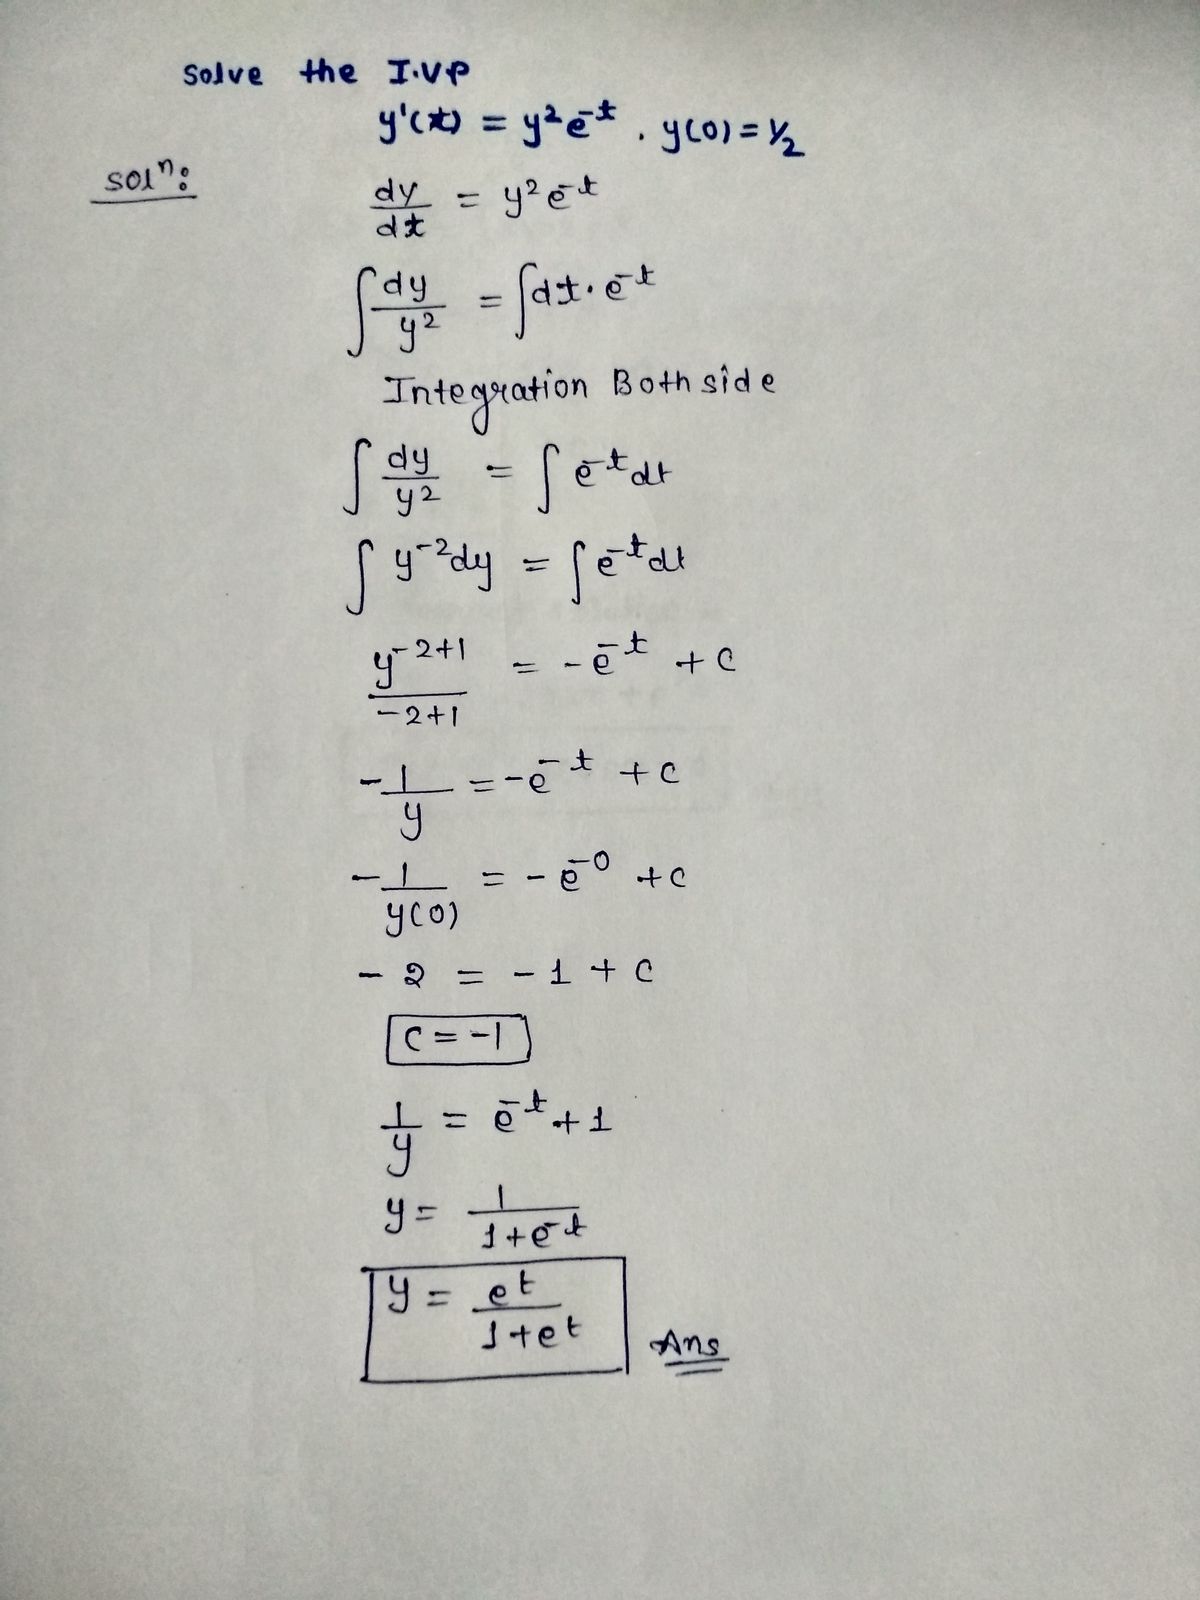 Solve the I.VP
y'(t) = y²e⁻ᵗ . y(0) = 1/2
Solⁿ:
dy/dt = y²e⁻ᵗ
∫ dy/y² = ∫dt·e⁻ᵗ
Integration Both side
∫ dy/y² = ∫ e⁻ᵗdt
∫ y⁻²dy = ∫e⁻ᵗdt
y⁻²⁺¹/-2+1 = -e⁻ᵗ + c
-1/y = -e⁻ᵗ + c
-1/y(0) = -e⁻⁰ + c
-2 = -1 + c
c = -1
1/y = e⁻ᵗ + 1
y = 1/1+e⁻ᵗ
y = eᵗ/1+eᵗ Ans